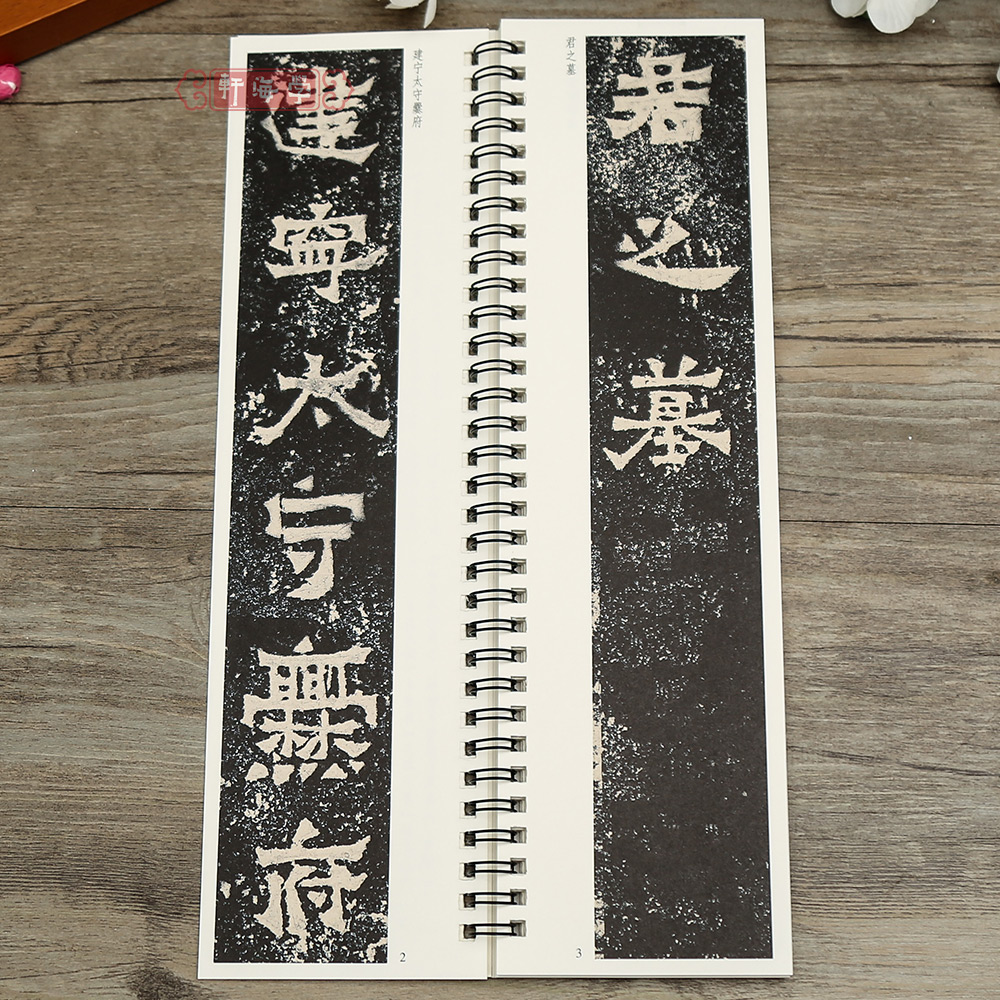 軒海堂
建寧太守爨府
建宁太守爨府
2
君之墓
君之墓
3